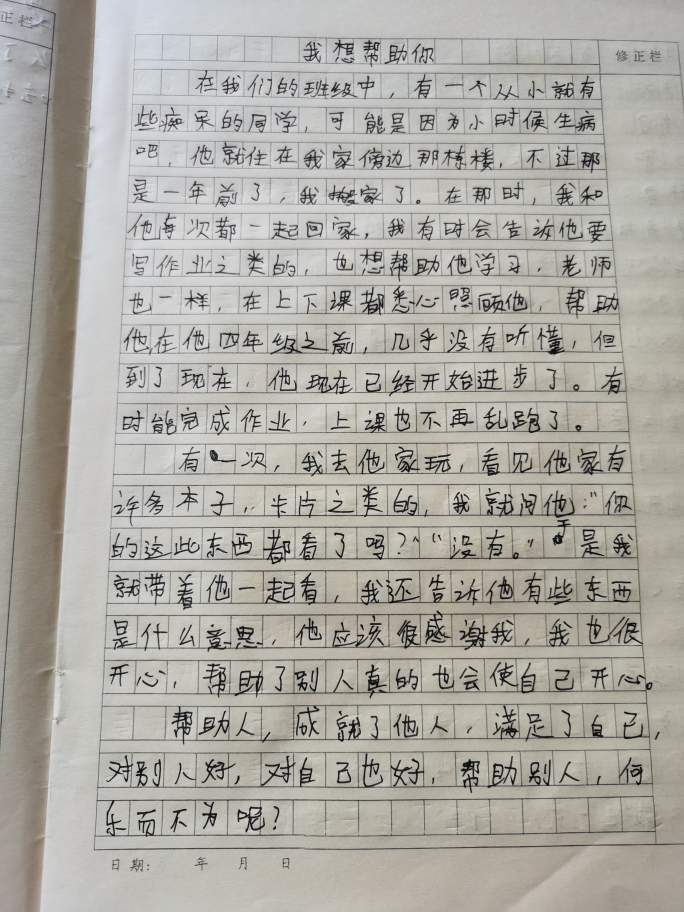 正栏
修正栏
我想帮助你
在我们的班级中，有一个从小就有
些痴呆的同学，可能是因为小时候生病
吧，他就住在我家傍边那栋楼，不过那
是一年前了，我搬家了。在那时，我和
他每次都一起回家，我有时会告诉他要
写作业之类的，也想帮助他学习，老师
也一样，在上下课都悉心照顾他，帮助
他，在他四年级之前，几乎没有听懂，但
到了现在，他现在已经开始进步了。有
时能完成作业，上课也不再乱跑了。
有一次，我去他家玩，看见他家有
许多本子，卡片之类的，我就问他：“你
的这些东西都看了吗？”“没有。”于是我
就带着他一起看，我还告诉他有些东西
是什么意思，他应该很感谢我，我也很
开心，帮助了别人真的也会使自己开心。
帮助人，成就了他人，满足了自己，
对别人好，对自己也好，帮助别人，何
乐而不为呢？
日期： 年 月 日